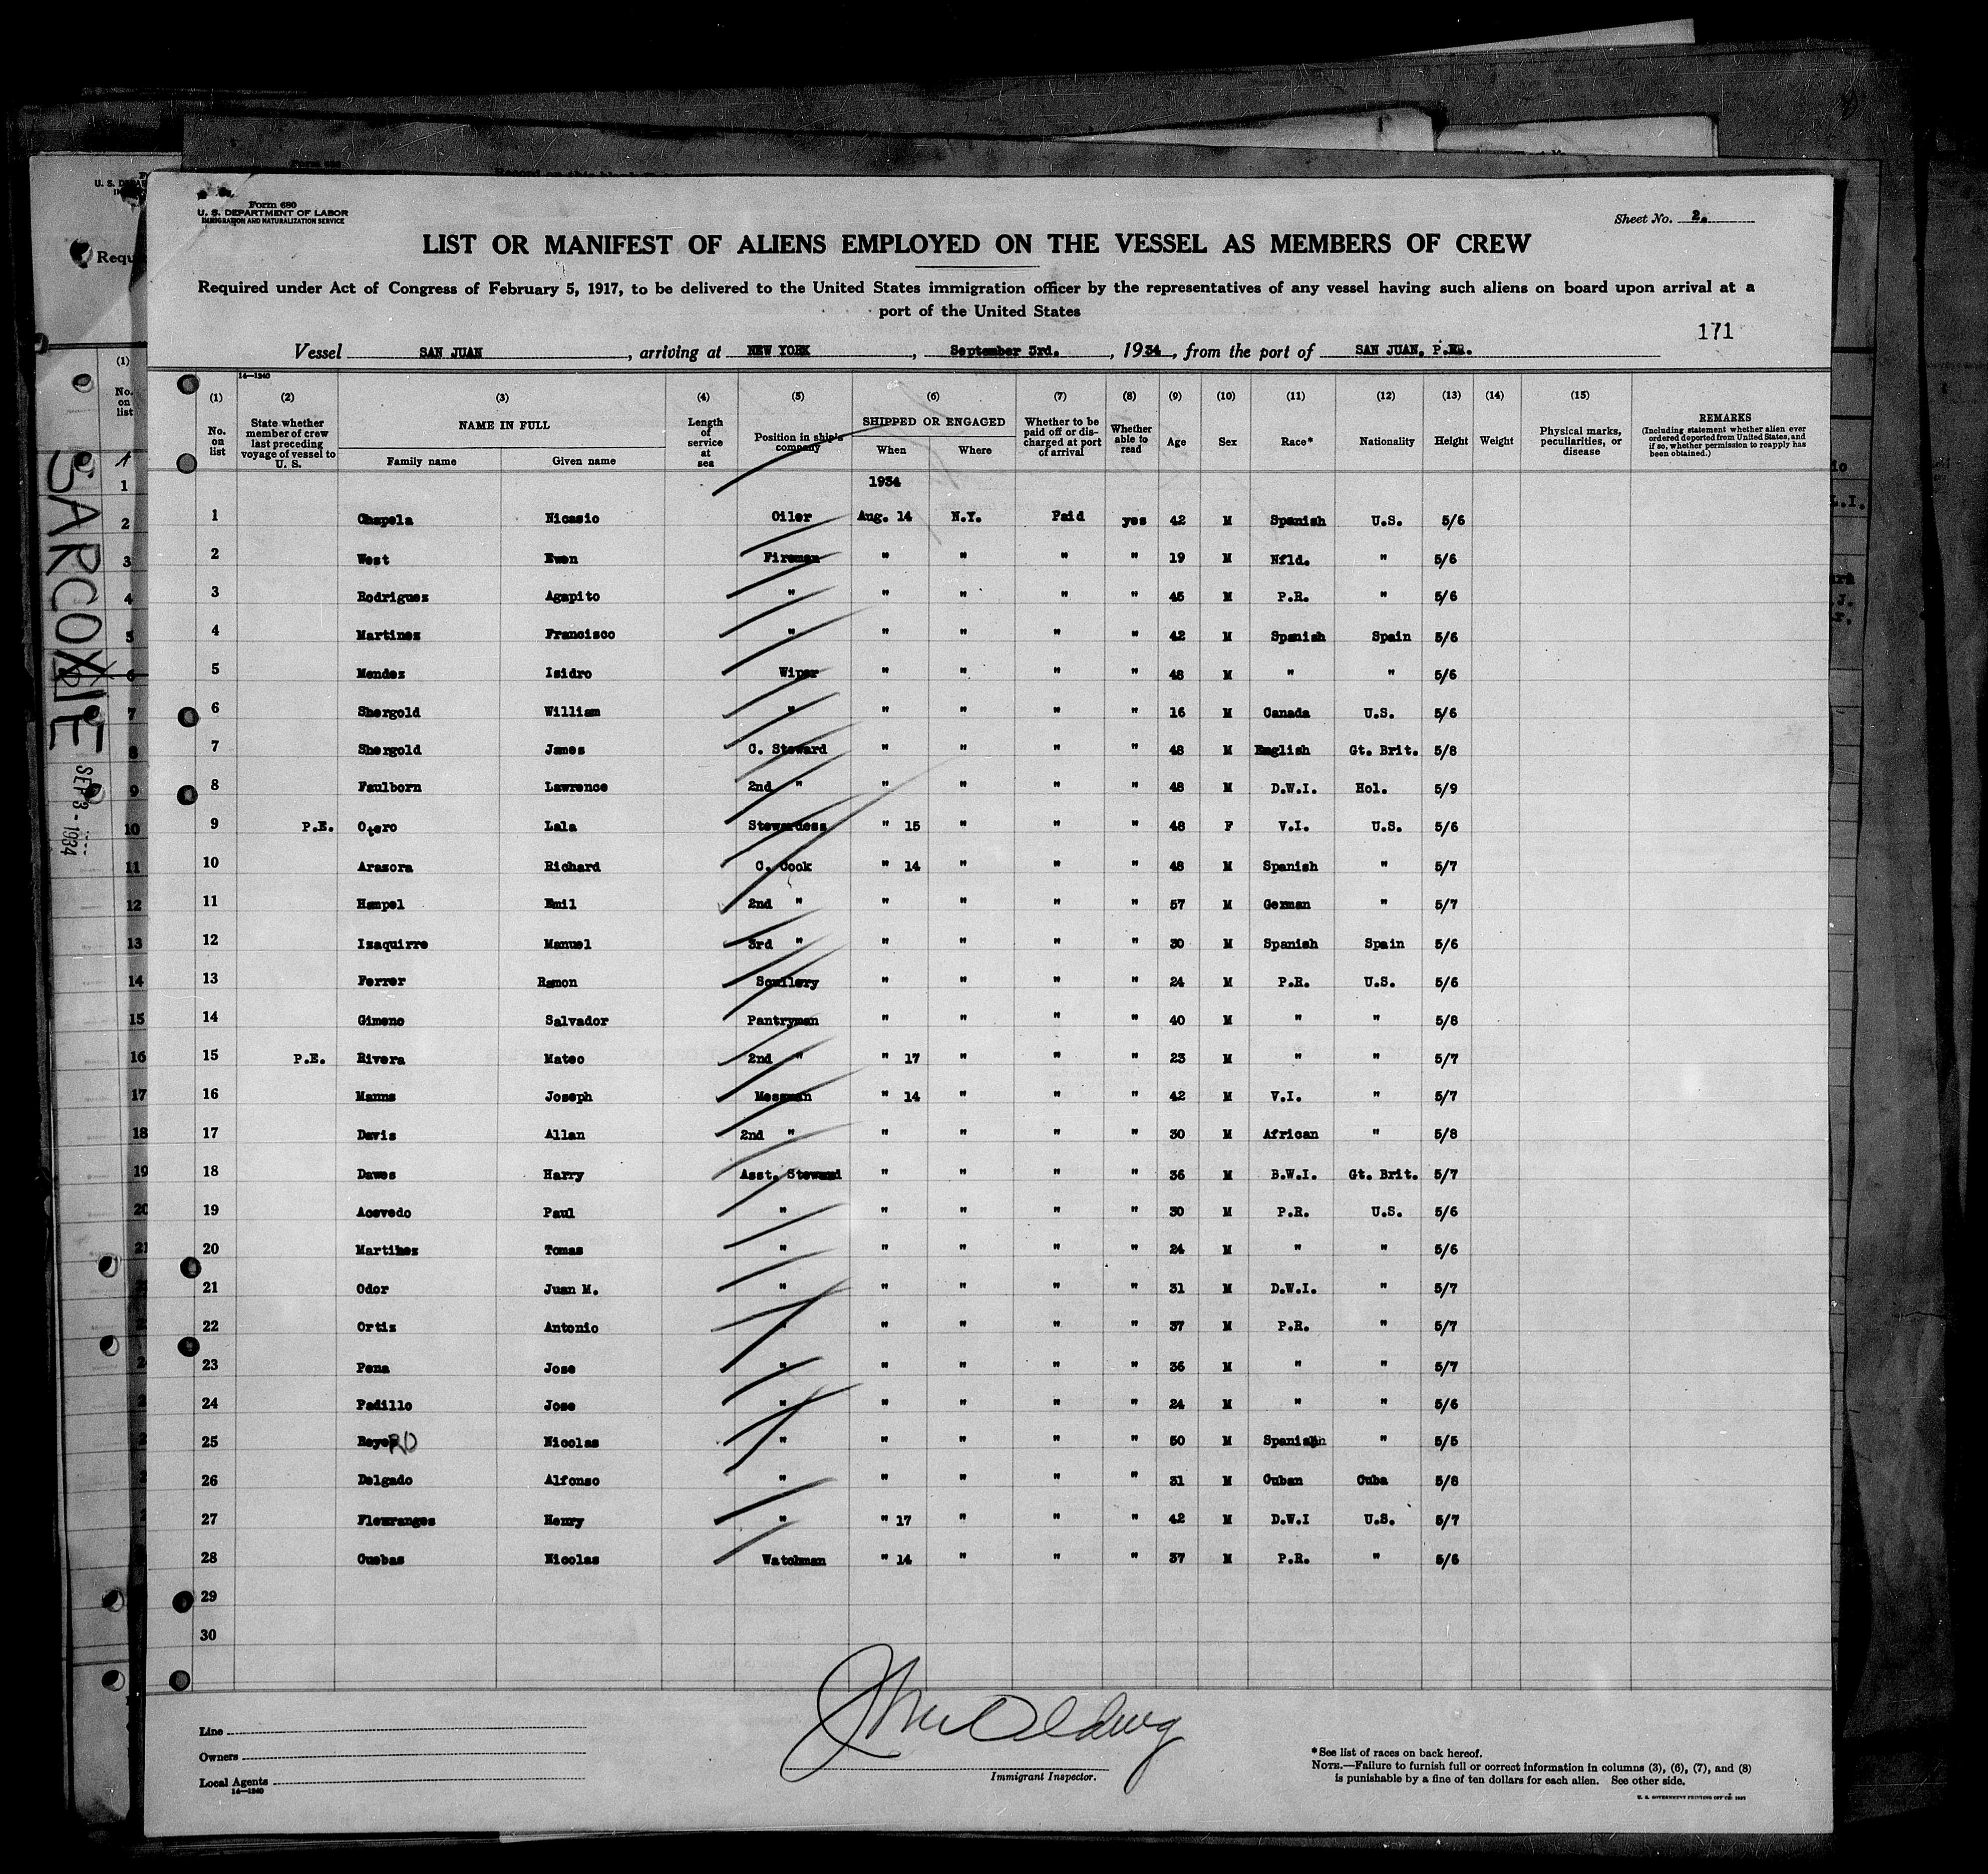 Form 680
U. S. DEPARTMENT OF LABOR
IMMIGRATION AND NATURALIZATION SERVICE
Sheet No. 2.
LIST OR MANIFEST OF ALIENS EMPLOYED ON THE VESSEL AS MEMBERS OF CREW
Required under Act of Congress of February 5, 1917, to be delivered to the United States immigration officer by the representatives of any vessel having such aliens on board upon arrival at a
port of the United States
171
Vessel SAN JUAN, arriving at NEW YORK, September 3rd., 1934, from the port of SAN JUAN, P.R.
14—1240
(1) No. on list (2) State whether member of crew last preceding voyage of vessel to U. S. (3) NAME IN FULL Family name Given name (4) Length of service at sea (5) Position in ship's company (6) SHIPPED OR ENGAGED When Where (7) Whether to be paid off or discharged at port of arrival (8) Whether able to read (9) Age (10) Sex (11) Race* (12) Nationality (13) Height (14) Weight (15) Physical marks, peculiarities, or disease REMARKS (Including statement whether alien ever ordered deported from United States, and if so, whether permission to reapply has been obtained.)
1934
1 Chapela Nicasio Oiler Aug. 14 N.Y. Paid yes 42 M Spanish U.S. 5/6
2 West Ewen Fireman " " " " 19 M Nfld. " 5/6
3 Rodriguez Agapito " " " " " 45 M P.R. " 5/6
4 Martinez Francisco " " " " " 42 M Spanish Spain 5/6
5 Mendez Isidro Wiper " " " " 48 M " " 5/6
6 Shergold William " " " " " 16 M Canada U.S. 5/6
7 Shergold James C. Steward " " " " 48 M English Gt. Brit. 5/8
8 Faulborn Lawrence 2nd " " " " " 48 M D.W.I. Hol. 5/9
9 P.E. Otero Lala Stewardess " 15 " " " 48 F V.I. U.S. 5/6
10 Arazora Richard C. Cook " 14 " " " 48 M Spanish " 5/7
11 Hampel Emil 2nd " " " " " 57 M German " 5/7
12 Izaquirre Manuel 3rd " " " " " 30 M Spanish Spain 5/6
13 Ferrer Ramon Scullery " " " " 24 M P.R. U.S. 5/6
14 Gimeno Salvador Pantryman " " " " 40 M " " 5/8
15 P.E. Rivera Mateo 2nd " " 17 " " " 23 M " " 5/7
16 Manns Joseph Messman " 14 " " " 42 M V.I. " 5/7
17 Davis Allan 2nd " " " " " 30 M African " 5/8
18 Dawes Harry Asst. Steward " " " " 36 M B.W.I. Gt. Brit. 5/7
19 Acevedo Paul " " " " " 30 M P.R. U.S. 5/6
20 Martinez Tomas " " " " " 24 M " " 5/6
21 Odor Juan M. " " " " " 31 M D.W.I. " 5/7
22 Ortiz Antonio " " " " " 37 M P.R. " 5/7
23 Pena Jose " " " " " 36 M " " 5/7
24 Padillo Jose " " " " " 24 M " " 5/6
25 Nicolas " " " " " 50 M Spanish " 5/5
26 Delgado Alfonso " " " " " 31 M Cuban Cuba 5/8
27 Fleuranges Henry " " 17 " " " 42 M D.W.I U.S. 5/7
28 Cuebas Nicolas Watchman " 14 " " " 37 M P.R. " 5/6
29
30
Line
Owners
Local Agents
14—1240
Immigrant Inspector.
*See list of races on back hereof.
NOTE.—Failure to furnish full or correct information in columns (3), (6), (7), and (8)
is punishable by a fine of ten dollars for each alien. See other side.
U. S. GOVERNMENT PRINTING OFFICE: 1927
SARCOXIE
SEP 3 - 1934